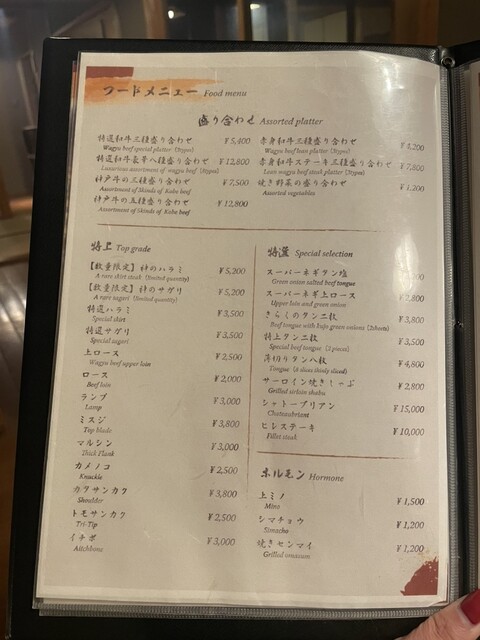 フードメニュー Food menu
盛り合わせ Assorted platter
特選和牛三種盛り合わせ ¥5,400
Wagyu beef special platter (3types)
特選和牛豪華八種盛り合わせ ¥12,800
Luxurious assortment of wagyu beef (8types)
神戸牛の三種盛り合わせ ¥7,500
Assortment of 3kinds of Kobe beef
神戸牛の五種盛り合わせ ¥12,800
Assortment of 5kinds of Kobe beef
赤身和牛三種盛り合わせ ¥4,200
Wagyu beef lean platter (3types)
赤身和牛ステーキ三種盛り合わせ ¥7,800
Lean wagyu beef steak platter (3types)
焼き野菜の盛り合わせ ¥1,200
Assorted vegetables
特上 Top grade
【数量限定】幻のハラミ ¥5,200
A rare skirt steak (limited quantity)
【数量限定】幻のサガリ ¥5,200
A rare sagari (limited quantity)
特選ハラミ ¥3,500
Special skirt
特選サガリ ¥3,500
Special sagari
上ロース ¥2,500
Wagyu beef upper loin
ロース ¥2,000
Beef loin
ランプ ¥3,000
Lamp
ミスジ ¥3,800
Top blade
マルシン ¥3,000
Thick Flank
カメノコ ¥2,500
Knuckle
カタサンカク ¥3,800
Shoulder
トモサンカク ¥2,500
Tri-Tip
イチボ ¥3,000
Aitchbone
特選 Special selection
スーパーネギタン塩
Green onion salted beef tongue
スーパーネギ上ロース ¥2,800
Upper loin and green onion
きらくのタン二枚 ¥3,800
Beef tongue with kujo green onions (2sheets)
特上タン二枚 ¥3,500
Special beef tongue (2 pieces)
薄切りタン八枚 ¥4,800
Tongue (8 slices thinly sliced)
サーロイン焼きしゃぶ ¥2,800
Grilled sirloin shabu
シャトーブリアン ¥15,000
Chateaubriant
ヒレステーキ ¥10,000
Fillet steak
ホルモン Hormone
上ミノ ¥1,500
Mino
シマチョウ ¥1,200
Simacho
焼きセンマイ ¥1,200
Grilled omasum